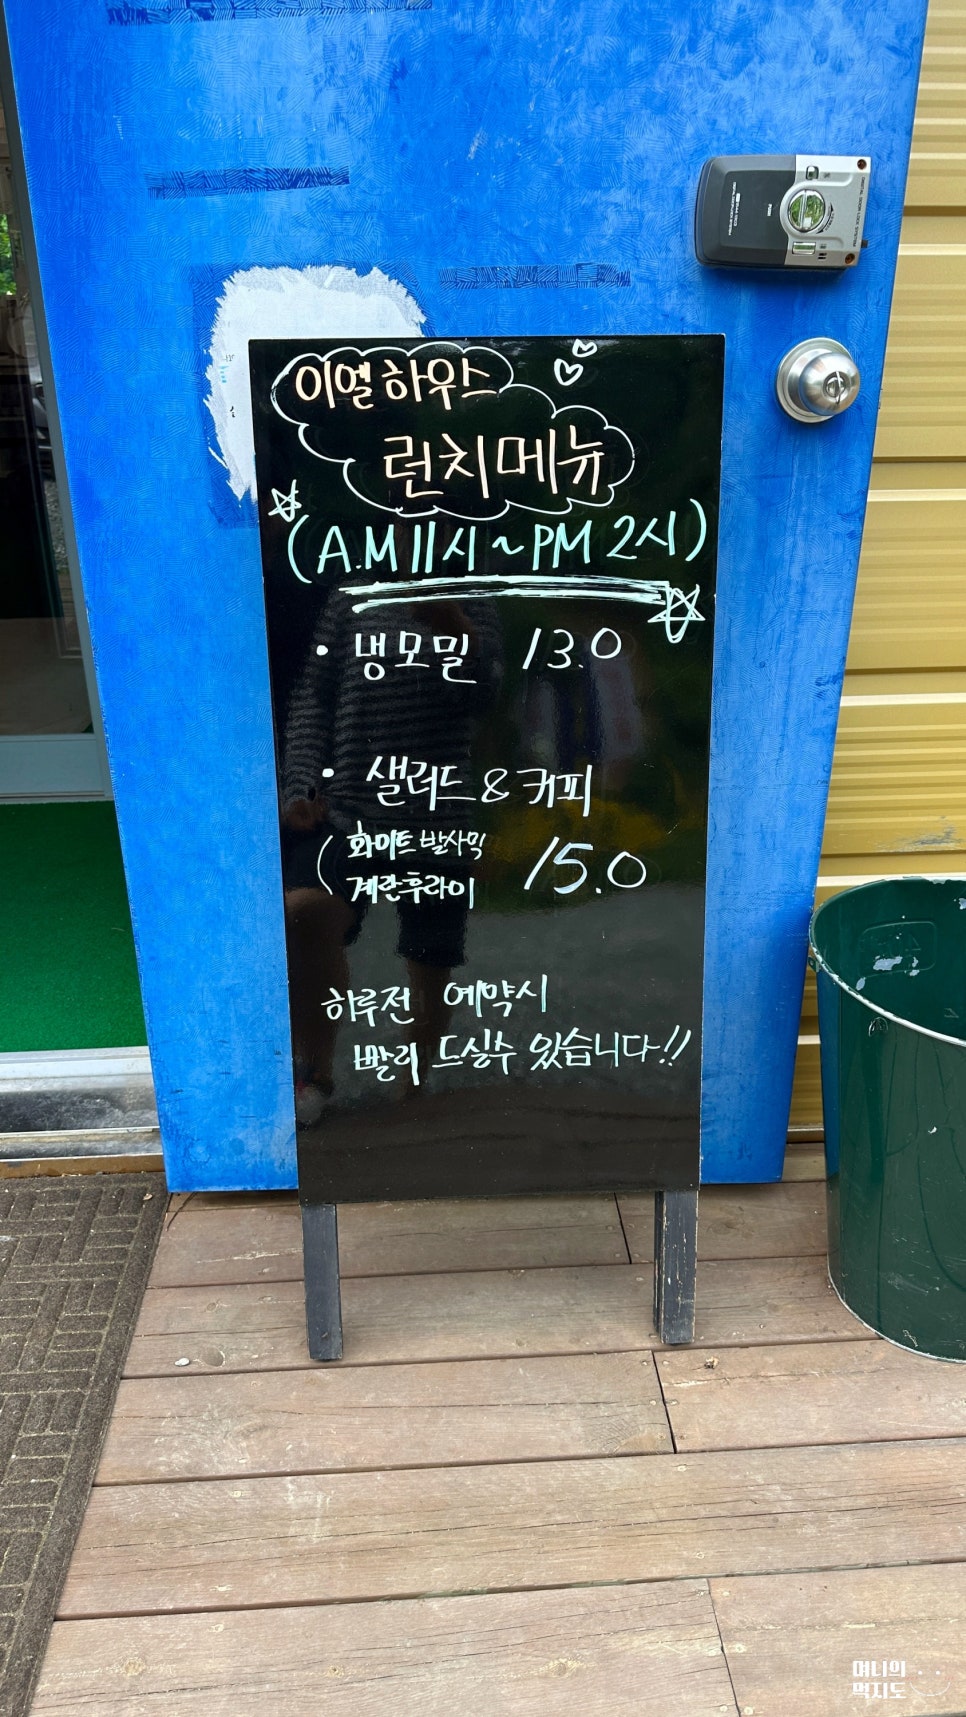 이엘하우스
런치메뉴
(A.M 11시 ~ PM 2시)
• 냉모밀 13.0
• 샐러드 & 커피
(화이트 발사믹
계란후라이 15.0
하루전 예약시
빨리 드실수 있습니다!!
머니의
먹지도